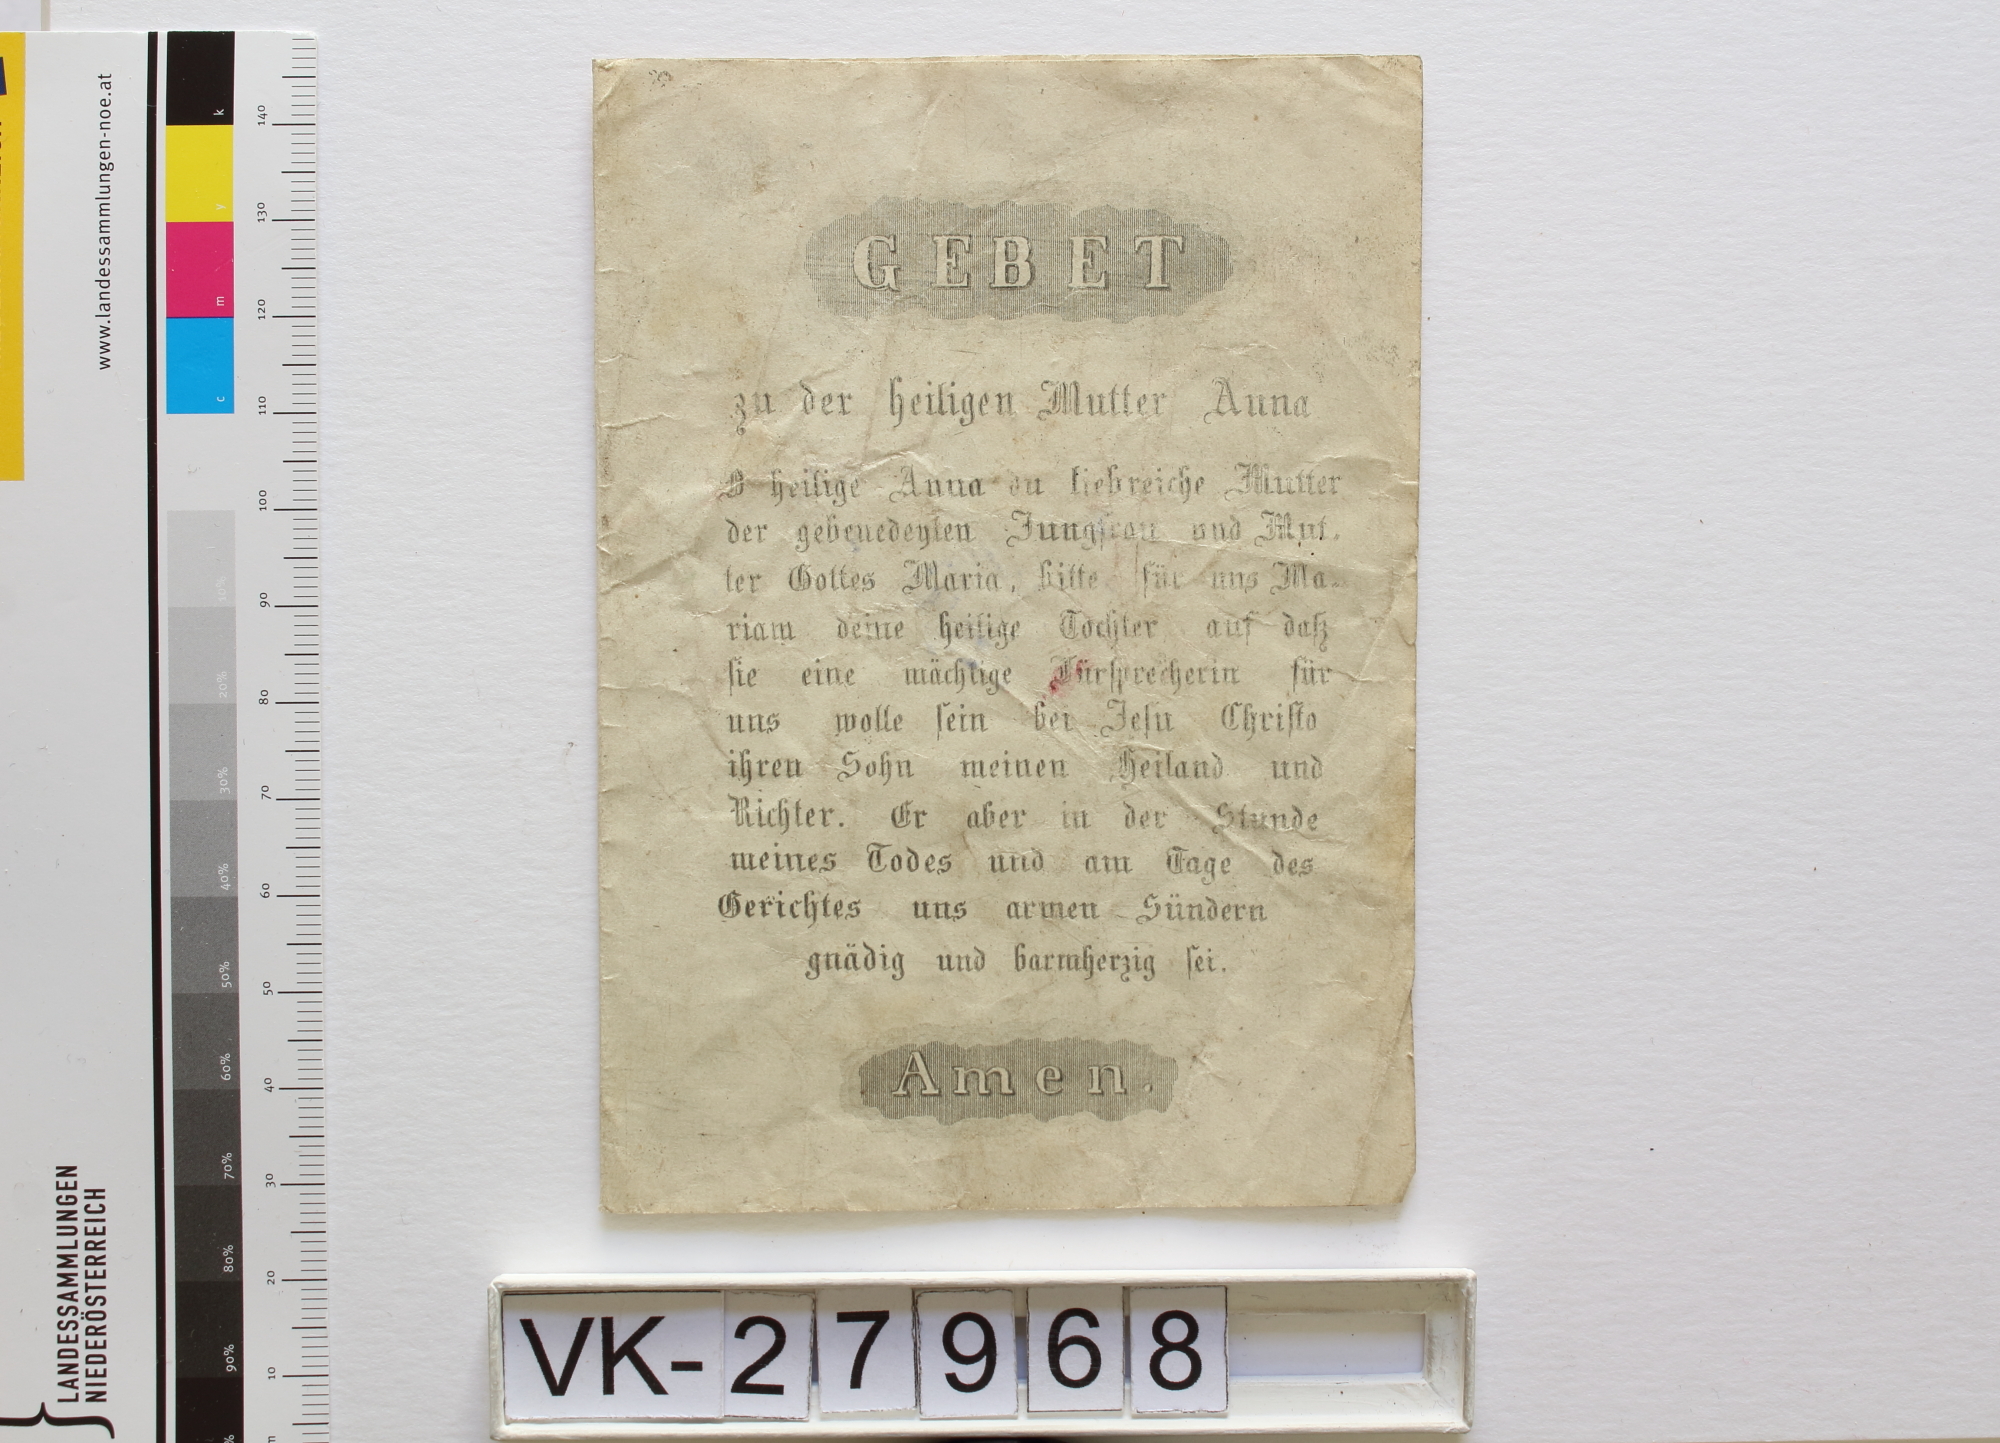 GEBET
zu der heiligen Mutter Anna
O heilige Anna du liebreiche Mutter
der gebenedeyten Jungfrau und Mut-
ter Gottes Maria, bitte für uns Ma-
riam deine heilige Tochter auf daß
sie eine mächtige Fürsprecherin für
uns wolle sein bei Jesu Christo
ihren Sohn meinen Heiland und
Richter. Er aber in der Stunde
meines Todes und am Tage des
Gerichtes uns armen Sündern
gnädig und barmherzig sei.
Amen.
VK-27968
www.landessammlungen-noe.at
LANDESSAMMLUNGEN
NIEDERÖSTERREICH
k
y
m
c
10%
20%
30%
40%
50%
60%
70%
80%
90%
140
130
120
110
100
90
80
70
60
50
40
30
20
10